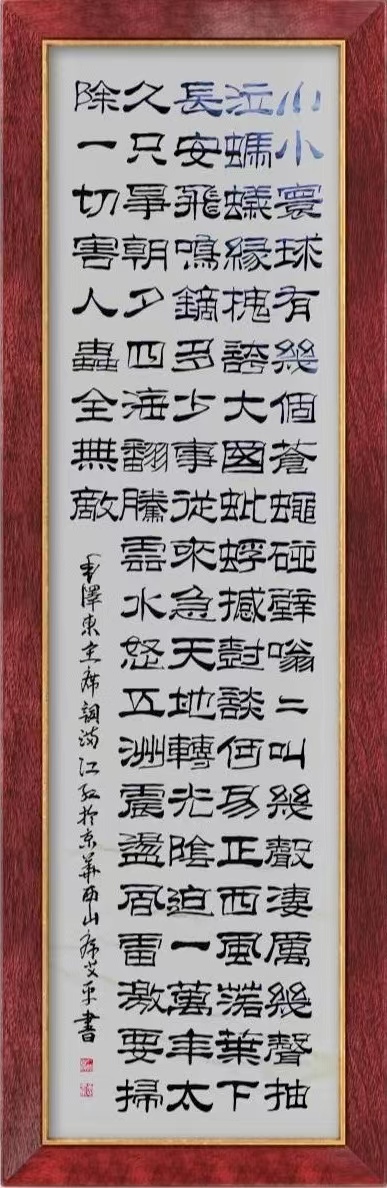 小小寰球有幾個蒼蠅碰壁嗡二叫幾聲淒厲幾聲抽
泣螞蟻緣槐誇大國蚍蜉撼樹談何易正西風落葉下
長安飛鳴鏑多少事從來急天地轉光陰迫一萬年太
久只爭朝夕四海翻騰雲水怒五洲震盪風雷激要掃
除一切害人蟲全無敵
毛澤東主席詞滿江紅於京華西山 書